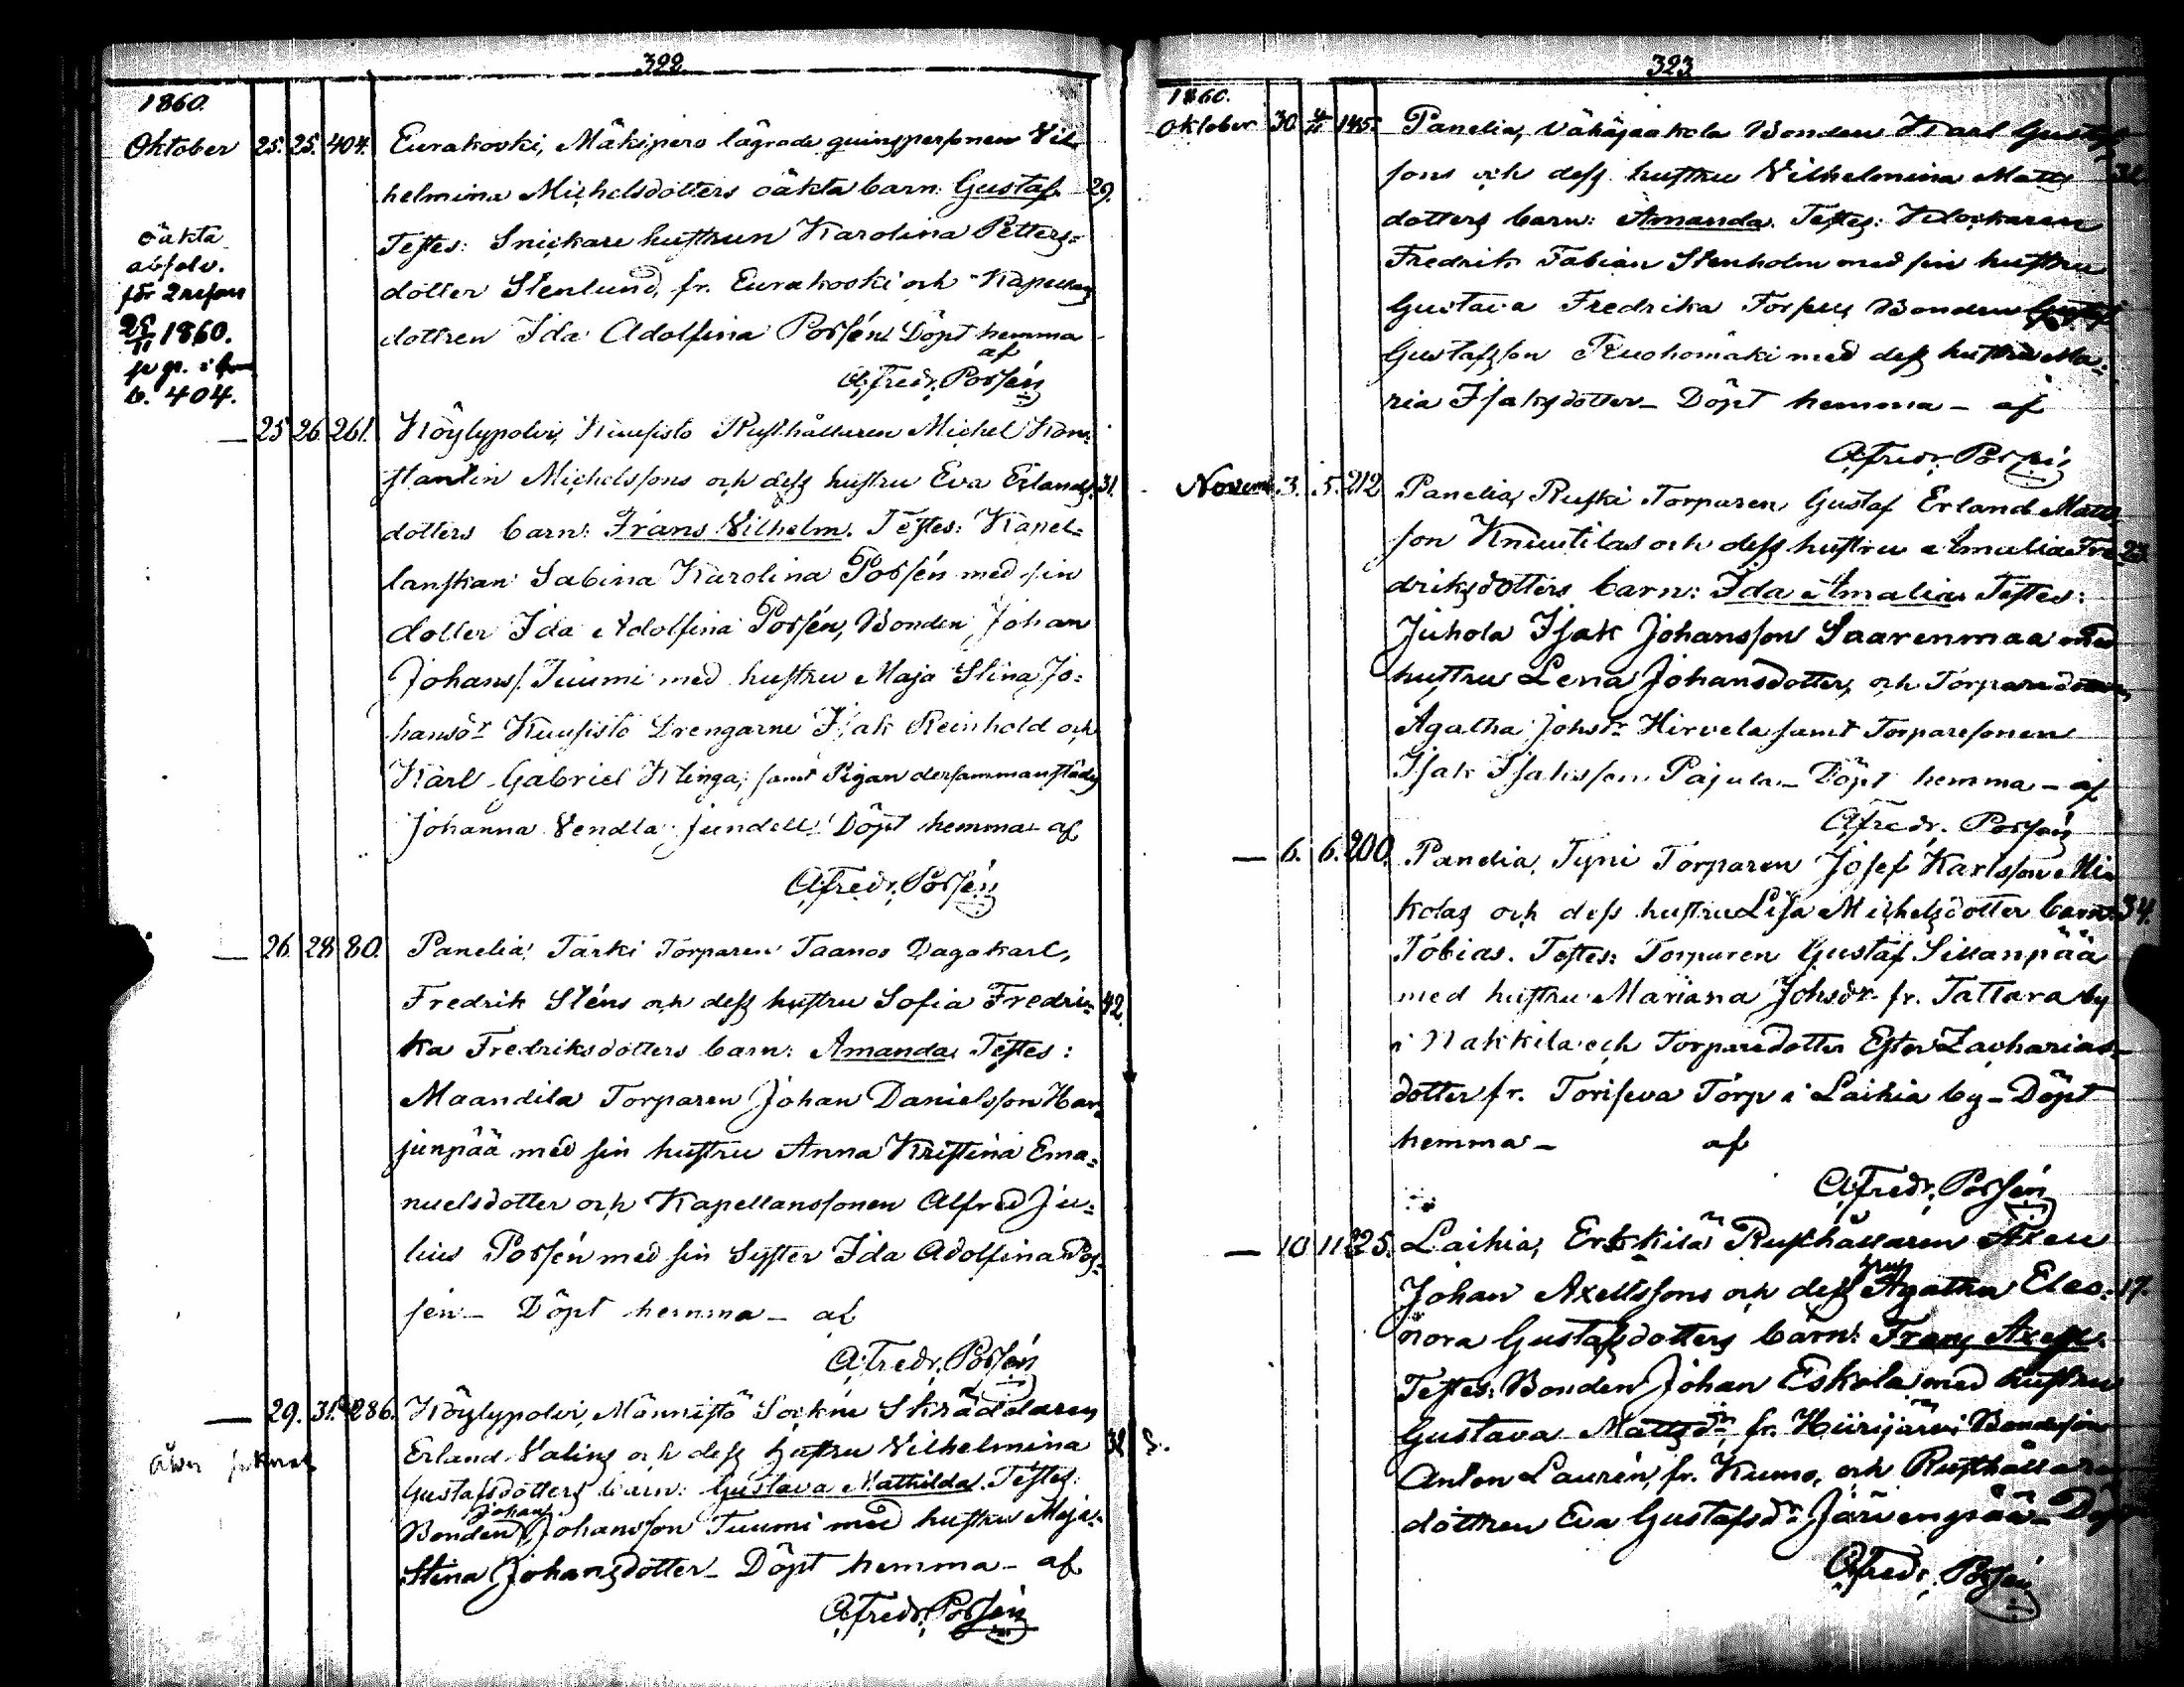 322
1860.
Oktober 25. 25. 404. Eurakoski, Mäkipero lägrade qvinsperſonen Vil-
helmina Michelsdotters oäkta barn: Gustaf 29.
Teſtes: Snickare huſtrun Karolina Petters-
dotter Stenlund, fr. Eurakoski och Kapellans
dottren Ida Adolfina Posſén Döpt hemma
af
A. Fredr. Posſén
oäkta
abſolv.
för 2 reſan
1860.
b. 404.
— 25 26. 261. Köylypolvi, Kuuſisto Ruſthållaren Michel Kon-
ſtantin Michelsſons och deſs huſtru Eva Erlands 31.
dotters barn: Frans Vilhelm. Teſtes: Kapel-
lanſkan Sabina Karolina Posſén med ſin
dotter Ida Adolfina Posſén, Bonden Johan
Johansſ. Tuumi med huſtru Maja Stina Jo-
hansdr Kuuſisto Drengarne Iſak Reinhold och
Karl Gabriel Klinga, ſamt Pigan derſammanſtädes
Johanna Vendla Jundell Döpt hemma af
A. Fredr. Posſén
— 26. 28 80. Panelia Tarki Torparen Taanos Dagakarl,
Fredrik Sténs och deſs huſtru Sofia Fredri- 42.
ka Fredriksdotters barn: Amanda. Teſtes:
Maandila Torparen Johan Danielsſon Har-
junpää med ſin huſtru Anna Kriſtina Ema-
nuelsdotter och Kapellansſonen Alfred Ju-
lius Posſén med ſin Syſter Ida Adolfina Pos-
ſén — Döpt hemma — af
A. Fredr. Posſén
— 29. 31. 286. Köylypolvi, Männiſtö Sockne Skräddaren
Erland Valins och deſs huſtru Vilhelmina
Gustafsdotters barn: Gustava Mathilda. Teſtes:
Johan
Bonden Johansſon Tuumi med huſtru Maja
Stina Johansdotter — Döpt hemma — af
A. Fredr. Posſén
323
1860.
Oktober 30. 145. Panelia, Vähäjaakola Bonden Karl Gustaf
ſons och deſs huſtru Vilhelmina Matts
dotters barn: Amanda. Teſtes: Klockaren
Fredrik Fabian Stenholm med ſin huſtru
Gustava Fredrika Forſell Bonden
Gustafsſon Ruohomäki med deſs huſtru Ma-
ria Iſaksdotter — Döpt hemma — af
A. Fredr. Posſén
Novemb. 3. 5. 212 Panelia, Ruſki Torparen Gustaf Erland Matts
ſon Knuutilas och deſs huſtru Amalia Fre- 23.
driksdotters barn: Ida Amalia Teſtes:
Juhola Iſak Johansſon Saarenmaa med
huſtru Lena Johansdotter, och Torpare dottren
Agatha Johsdr Hirvela ſamt Torpareſonen
Iſak Iſaksſon Pajula — Döpt hemma — af
A. Fredr. Posſén
— 6. 6. 200. Panelia, Tyni Torparen Joſef Karlsſon Mi-
kolas och deſs huſtru Liſa Michelsdotter barn 34.
Tobias. Teſtes: Torparen Guſtaf Sillanpää
med huſtru Mariana Johsdr. fr. Tattara by
i Nakkila och Torparedotter Eſter Zacharias-
dotter fr. Toriſeva Torp i Laihia by — Döpt
hemma — af
A. Fredr. Posſén
— 10 11. 225. Laihia, Erkkilä Ruſthållaren Axell
Johan Axellsſons och deſs hru Agatha Eleo- 17.
nora Gustafsdotters barn: Frans Axell.
Teſtes: Bonden Johan Eskola med huſtru
Gustava Mattsdr, fr. Hiirijärvi Bondeſon
Anton Laurén, fr. Kumo, och Ruſthållare
dottren Eva Gustafsdr Järvenpää — Döpt
A. Fredr. Posſén